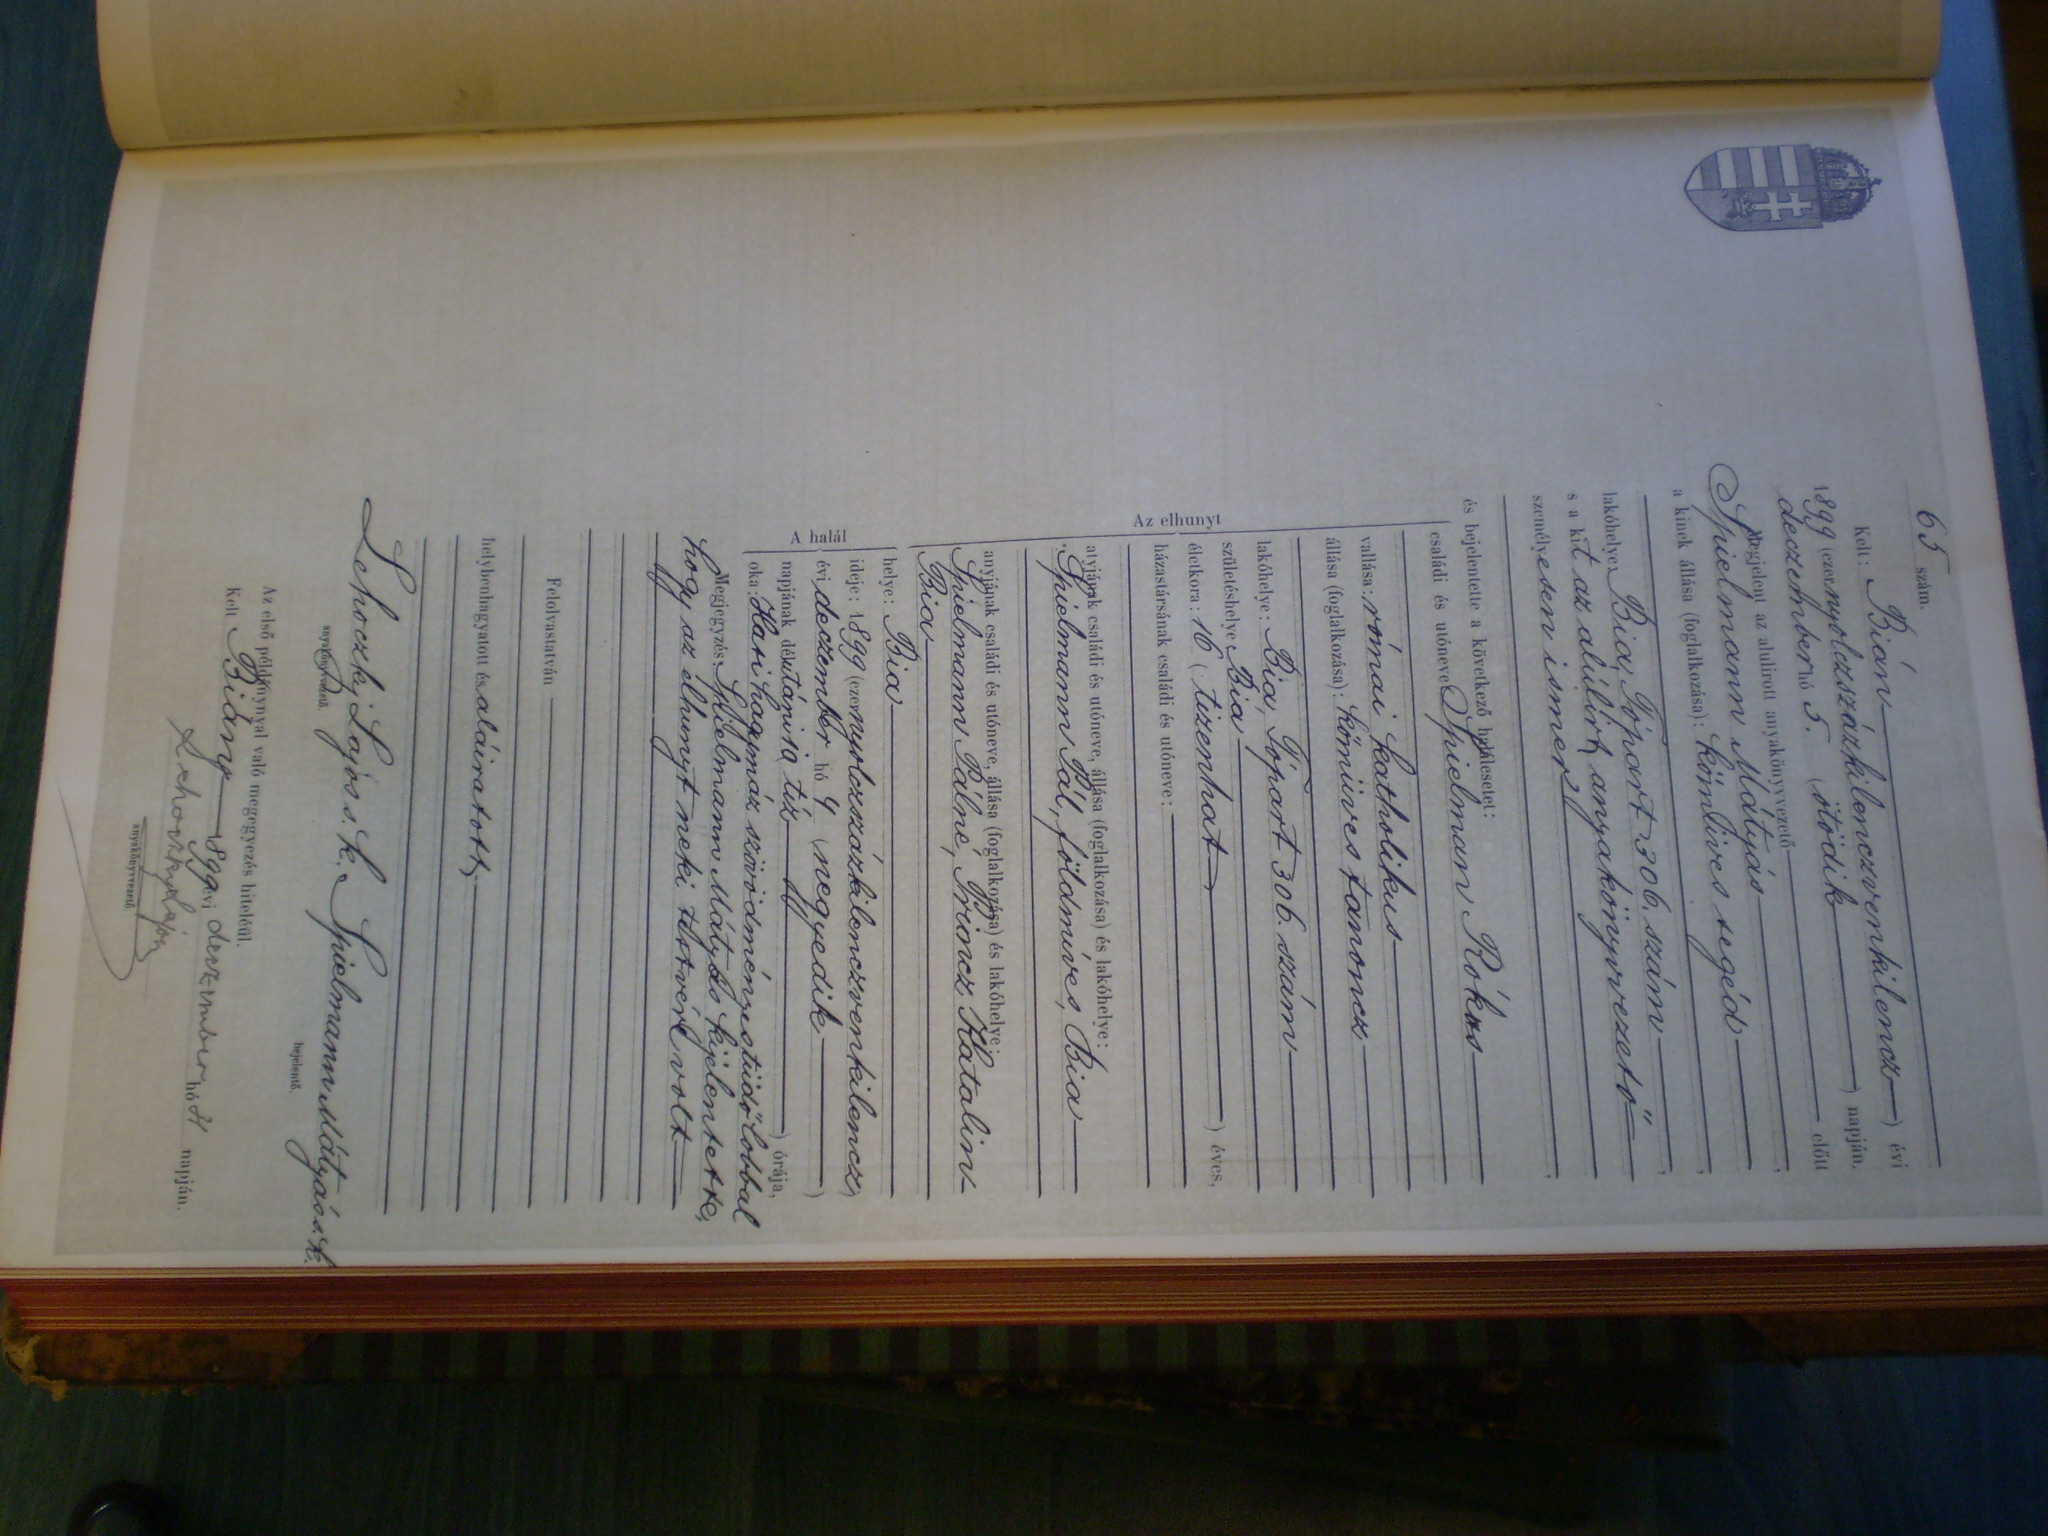 65 szám.
Kelt: Bián 1899 (ezernyolczszázkilenczvenkilencz) évi
deczember hó 5. (ötödik) napján.
Megjelent az alulirott anyakönyvvezető előtt
Spielmann Mátyás
a kinek állása (foglalkozása): kőmüves segéd
lakóhelye: Bia, Tópart 306. szám
s a kit az alúlirt anyakönyvvezető
személyesen ismer,
és bejelentette a következő halálesetet:
családi és utóneve Spielman Rókus
vallása: római katholikus
állása (foglalkozása): kőmüves tanoncz
lakóhelye: Bia, Tópart 306. szám
születéshelye Bia
életkora: 16 (tizenhat) éves,
házastársának családi és utóneve:
Az elhunyt
atyjának családi és utóneve, állása (foglalkozása) és lakóhelye:
Spielmann Pál, földmíves, Bia
anyjának családi és utóneve, állása (foglalkozása) és lakóhelye:
Spielmann Pálné, Princz Katalin
Bia
A halál
helye: Bia
ideje: 1899 (ezernyolczszázkilenczvenkilencz)
évi deczember hó 4 (negyedik)
napjának délutánja tíz ) órája,
oka: Hasi hagymáz szövődményes tüdőlobbal
Megjegyzés Spielmann Mátyás kijelentette,
hogy az elhunyt neki testvére volt
Felolvastatván
helybenhagyatott és aláiratott,
Lehoczky Lajos s. k. Spielmann Mátyás s. k.
anyakönyvvezető. bejelentő.
Az első példánynyal való megegyezés hiteléül.
Kelt Bián, 1899 évi deczember hó 31 napján.
Lehoczky Lajos
anyakönyvvezető.